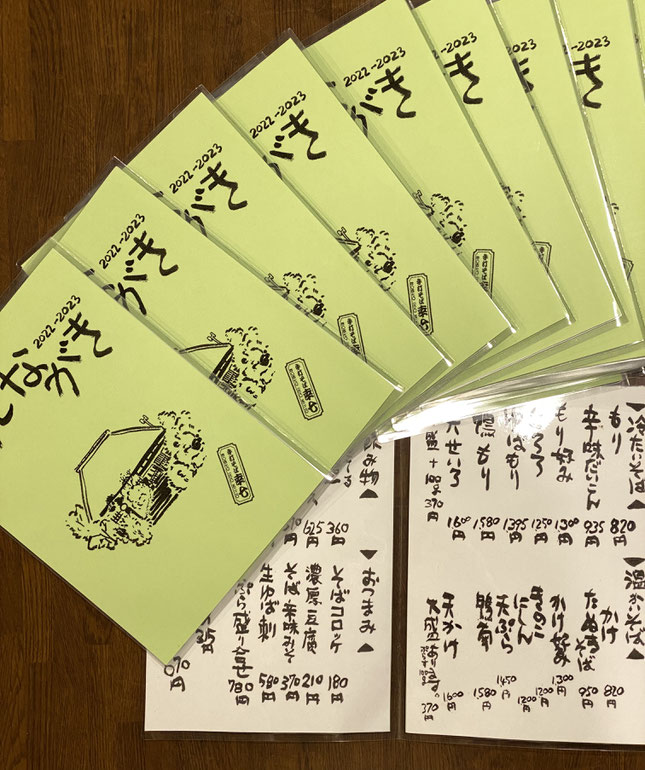 2022-2023
ながき
手打そば
2022-2023
がき
手打そば
2022-2023
がき
手打そば
2022-2023
がき
2022-2023
がき
2022-2023
き
2022-2023
き
冷たいそば
もり 820円
辛味だいこん 935円
もり好み 1300円
ろろ 1250円
ゆばもり 1395円
鴨もり 1580円
天せいろ 1600円
盛+180g 370円
温かいそば
かけ 820円
たぬきそば 950円
かけ好み 1300円
きのこ 1200円
にしん 1200円
天ぷら 1450円
鴨南 1580円
天かけ 1600円
大盛あります。 370円
み物
360円
625円
10円
おつまみ
そばコロッケ 180円
濃厚豆腐 210円
そば辛味みそ 370円
生ゆば刺 580円
ぷら盛り合せ 780円
070円